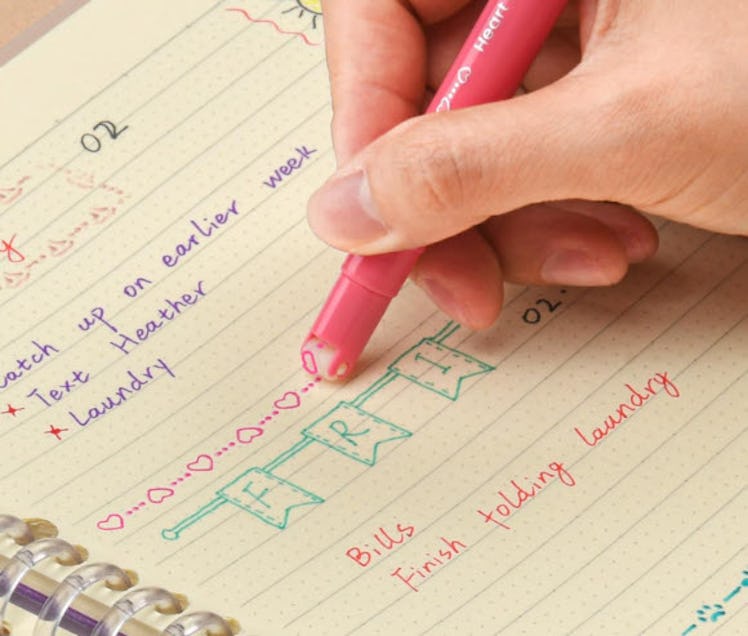 Heart
02
y
atch up on earlier week
Text Heather
Laundry
F R I
02.
Bills
Finish folding laundry